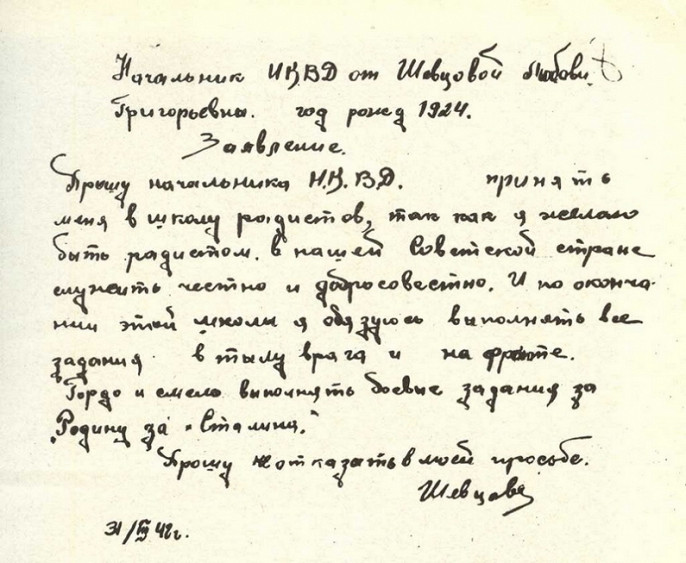 Начальник НКВД от Шевцовой Любови
Григорьевны. год рожд 1924.
Заявление.
Прошу начальника Н.К.В.Д. принять
меня в школу радистов, так как я желаю
быть радистом. в нашей Советской стране
служить честно и добросовестно. И по оконча-
нии этой школы я обязуюсь выполнять все
задания в тылу врага и на фронте.
Гордо и смело выполнять боевые задания за
„Родину за „Сталина."
Прошу не отказать в моей просьбе.
Шевцова
31/III 42 г.